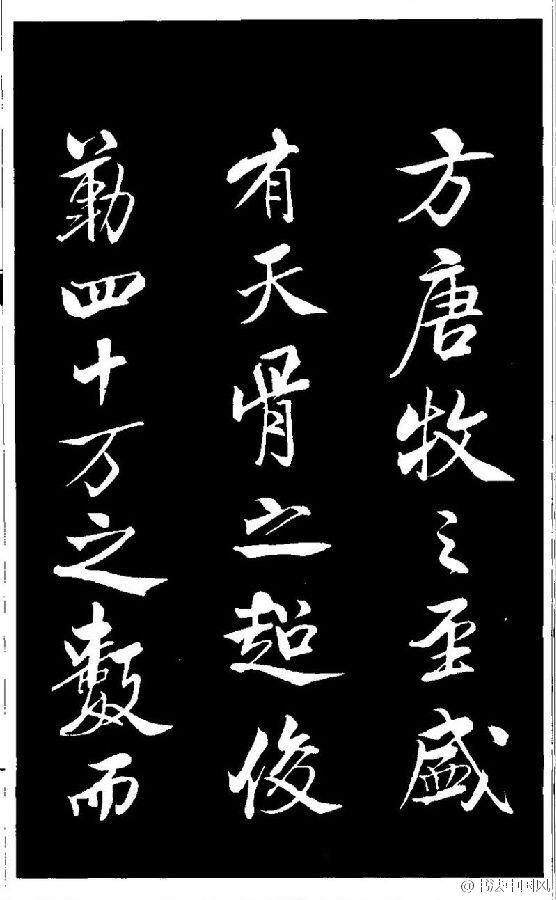 方唐牧之至盛
有天骨之超俊
勒四十万之數而
@书法中国风